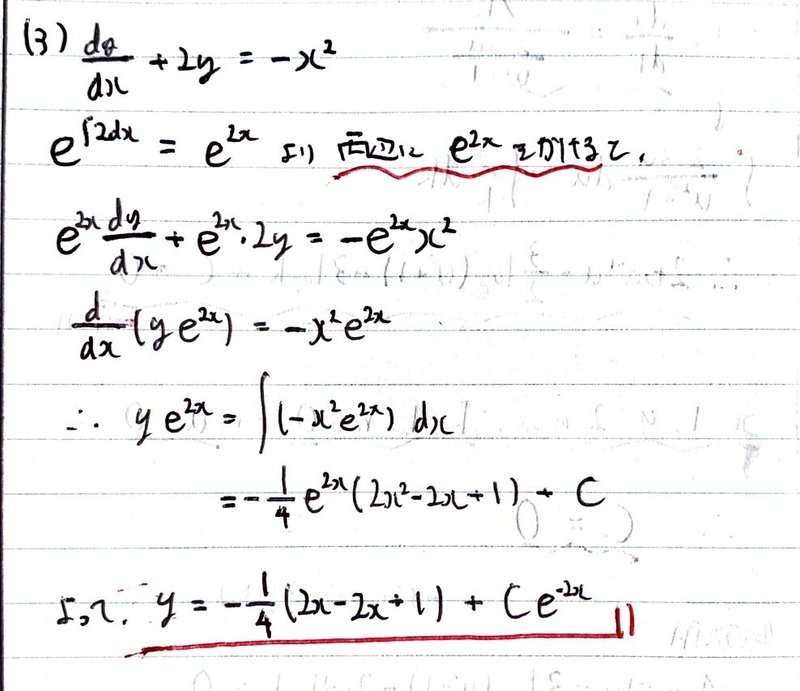 (3) dy/dx + 2y = -x²
e^∫2dx = e^2x より 両辺に e^2x をかけて,
e^2x dy/dx + e^2x · 2y = -e^2x x²
d/dx (y e^2x) = -x² e^2x
∴ y e^2x = ∫(-x² e^2x) dx
= -1/4 e^2x (2x² - 2x + 1) + C
よって, y = -1/4 (2x - 2x + 1) + C e^-2x